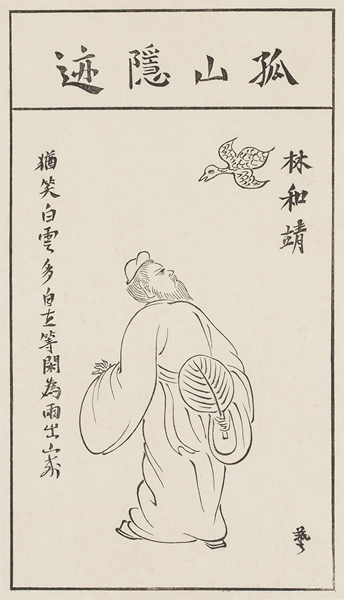 孤山隱迹
林和靖
猶笑白雲多自在等閑為雨出山來